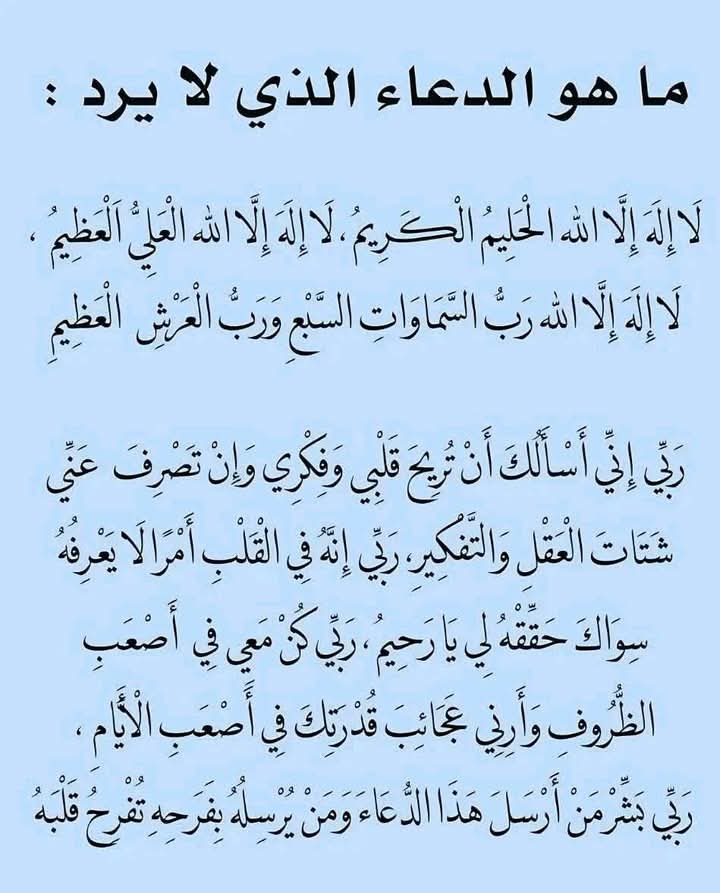 ما هو الدعاء الذي لا يرد :
لَا إِلَهَ إِلَّا الله الْحَلِيمُ الْكَرِيمُ، لَا إِلَهَ إِلَّا الله الْعَلِيُّ اَلْعَظِيمُ ،
لَا إِلَهَ إِلَّا الله رَبُّ السَّمَاوَاتِ السَّبْعِ وَرَبُّ الْعَرْشِ الْعَظِيمِ
رَبِّي إِنِّي أَسْأَلُكَ أَنْ تُرِيحَ قَلْبِي وَفِكْرِي وَإِنْ تَصْرِفَ عَنِّي
شَتَاتَ الْعَقْلِ وَالتَّفْكِيرِ، رَبِّي إِنَّهُ فِي الْقَلْبِ أَمْرًا لَا يَعْرِفُهُ
سِوَاكَ حَقِّقْهُ لِي يَا رَحِيمُ، رَبِّي كُنْ مَعِي فِي أَصْعَبِ
الظُّرُوفِ وَأَرِنِي عَجَائِبَ قُدْرَتِكَ فِي أَصْعَبِ الْأَيَّامِ ،
رَبِّي بَشِّرْ مَنْ أَرْسَلَ هَذَا الدُّعَاءَ وَمَنْ يُرْسِلُهُ بِفَرَحِهِ تُفْرِحُ قَلْبَهُ